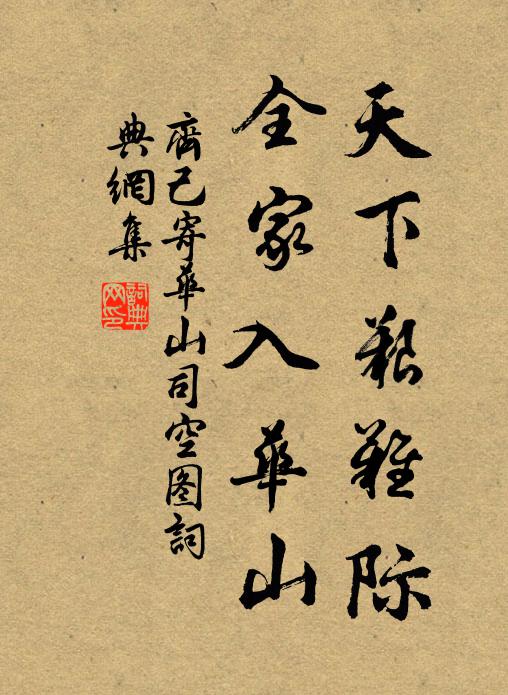 天下艰難际
全家入華山
齊己寄華山司空图詞
典網集
詞典網印